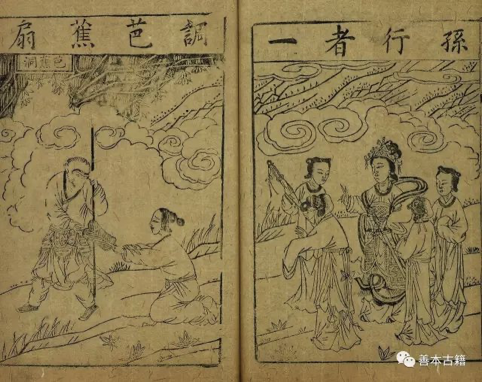 孫行者一
調芭蕉扇
芭蕉洞
善本古籍